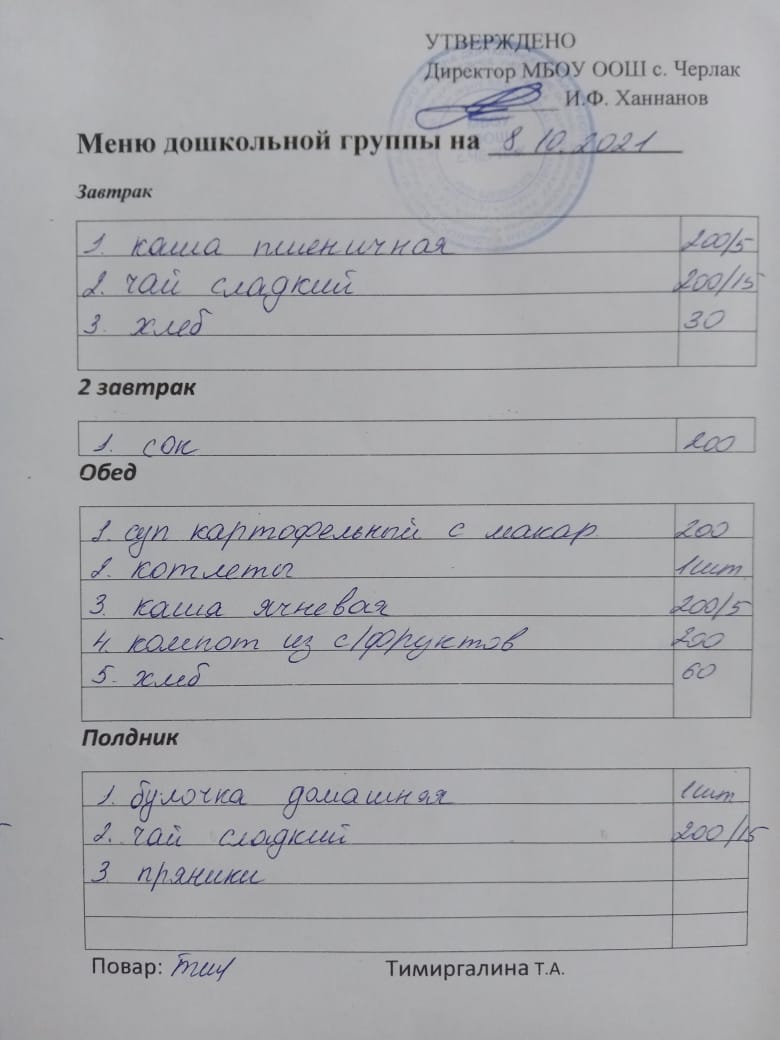 УТВЕРЖДЕНО
Директор МБОУ ООШ с. Черлак
И.Ф. Ханнанов
Меню дошкольной группы на 8.10.2021
Завтрак
1. каша пшеничная 200/5
2. чай сладкий 200/15
3. хлеб 30
2 завтрак
1. сок 200
Обед
1. суп картофельный с макар. 200
2. котлеты 1 шт
3. каша ячневая 200/5
4. компот из с/фруктов 200
5. хлеб 60
Полдник
1. булочка домашняя 1 шт
2. чай сладкий 200/15
3. пряники
Повар: Тимиргалина Т.А.